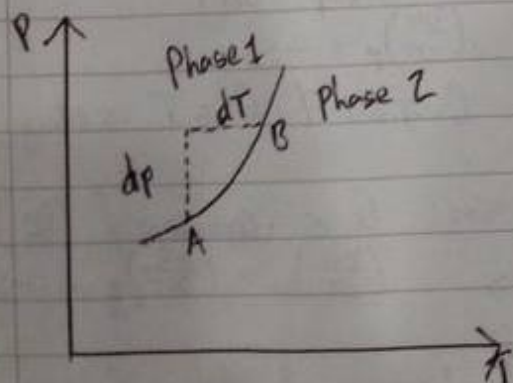 P
Phase 1
dT
Phase 2
B
dp
A
T